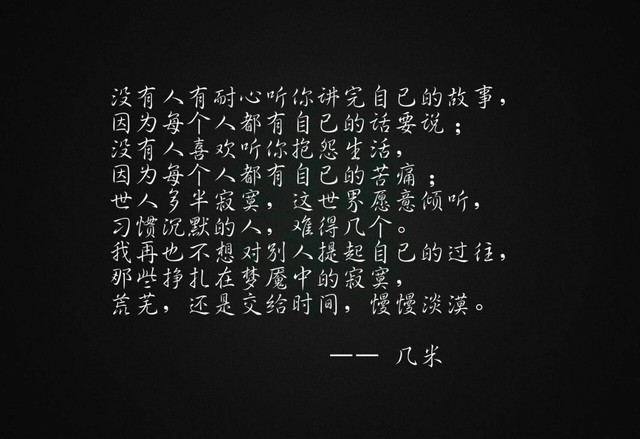 没有人有耐心听你讲完自己的故事，
因为每个人都有自己的话要说；
没有人喜欢听你抱怨生活，
因为每个人都有自己的苦痛；
世人多半寂寞，这世界愿意倾听，
习惯沉默的人，难得几个。
我再也不想对别人提起自己的过往，
那些挣扎在梦魇中的寂寞，
荒芜，还是交给时间，慢慢淡漠。
—— 几米